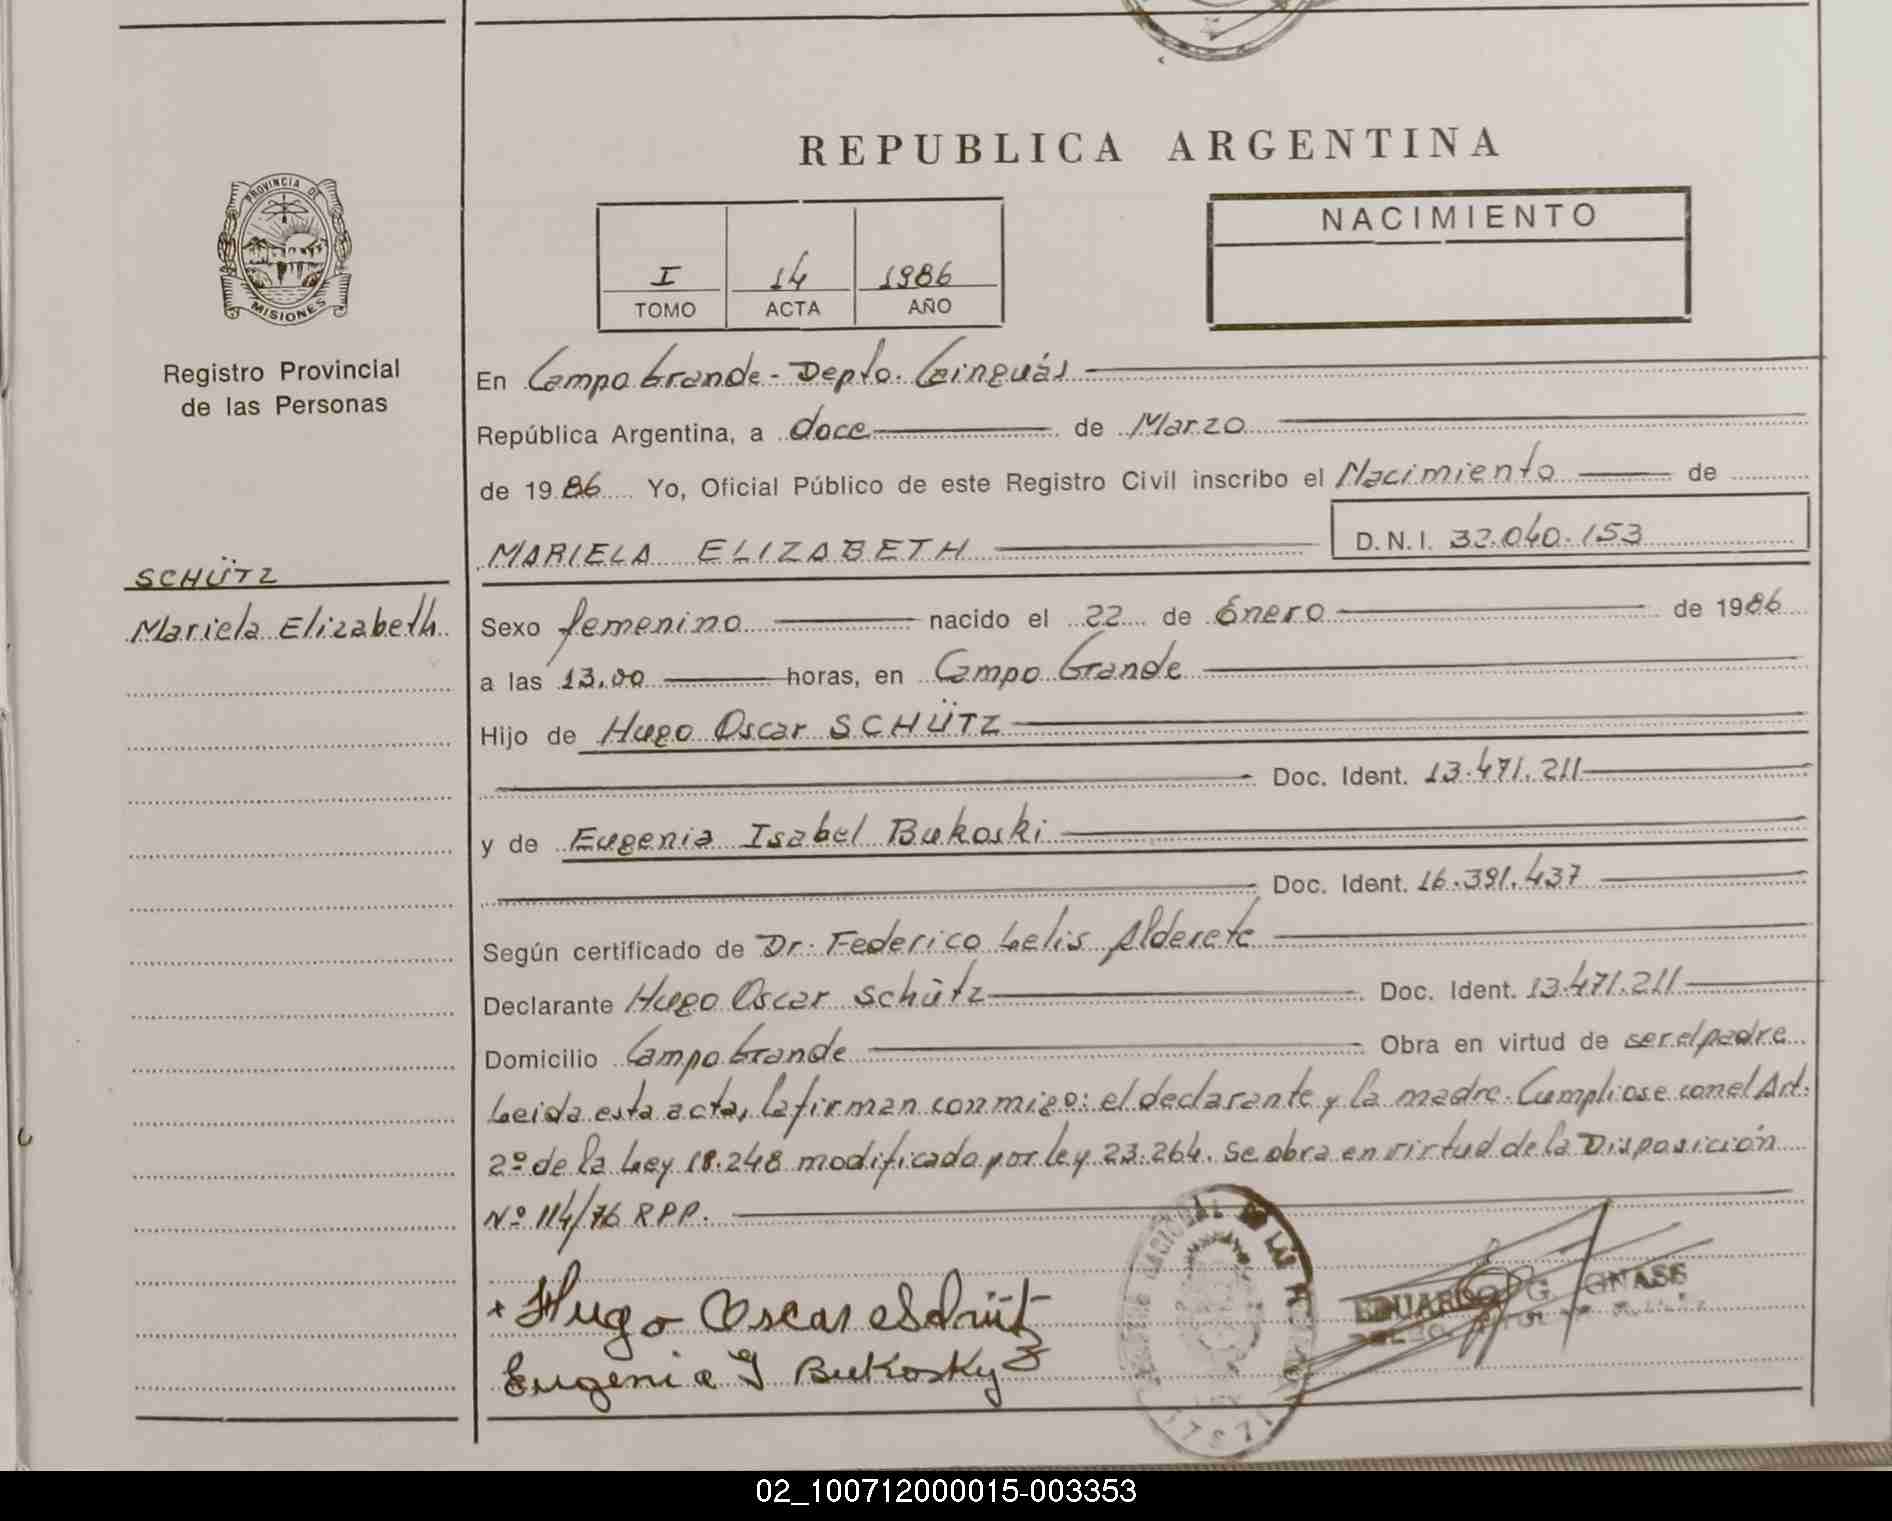 REPUBLICA ARGENTINA
PROVINCIA DE
MISIONES
Registro Provincial
de las Personas
SCHÜTZ
Mariela Elizabeth
I 14 1986
TOMO ACTA AÑO
NACIMIENTO
En Campo Grande - Depto. Cainguás
República Argentina, a doce de Marzo
de 1986 Yo, Oficial Público de este Registro Civil inscribo el Nacimiento de
MARIELA ELIZABETH D.N.I. 32.040.153
Sexo femenino nacido el 22 de Enero de 1986
a las 13,00 horas, en Campo Grande
Hijo de Hugo Oscar SCHÜTZ
Doc. Ident. 13.471.211
y de Eugenia Isabel Bukoski
Doc. Ident. 16.391.437
Según certificado de Dr. Federico Lelis Alderete
Declarante Hugo Oscar Schütz Doc. Ident. 13.471.211
Domicilio Campo Grande Obra en virtud de ser el padre
Leida esta acta, la firman conmigo: el declarante y la madre. Cumpliose con el Art.
2º de la Ley 18.248 modificado por ley 23.264. Se obra en virtud de la Disposición
Nº 114/76 RPP.
Hugo Oscar Schütz
Eugenia I Bukosky
EDUARDO G. GNASS
02_100712000015-003353